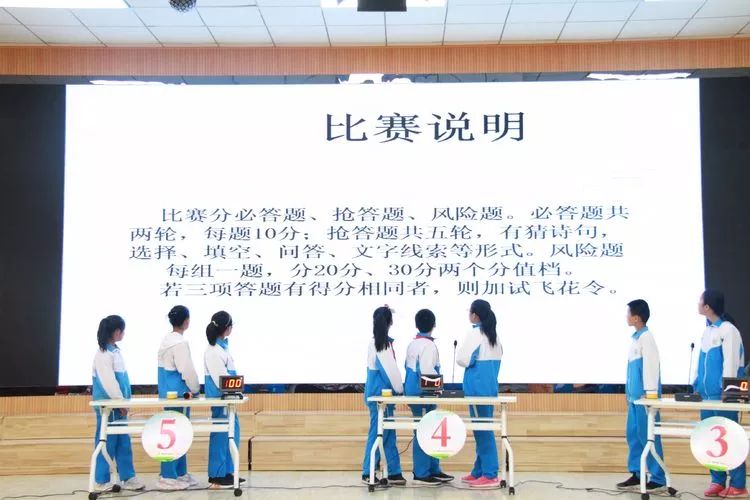 比赛说明
比赛分必答题、抢答题、风险题。必答题共
两轮，每题10分；抢答题共五轮，有猜诗句，
选择、填空、问答、文字线索等形式。风险题
每组一题，分20分、30分两个分值档。
若三项答题有得分相同者，则加试飞花令。
100
5
4
3